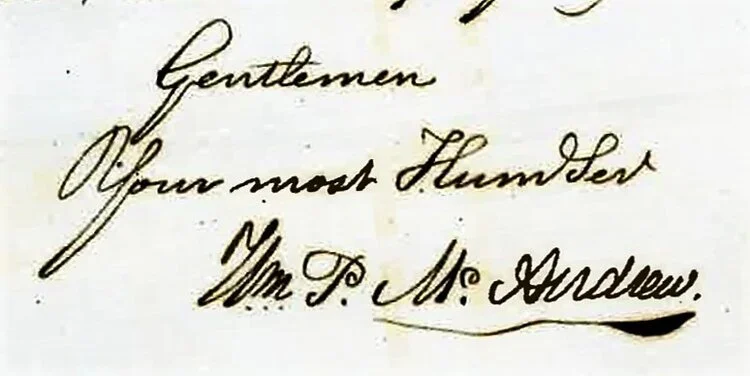 Gentlemen
Your most Humb Serv
Wm. P. Mc. Andrew.